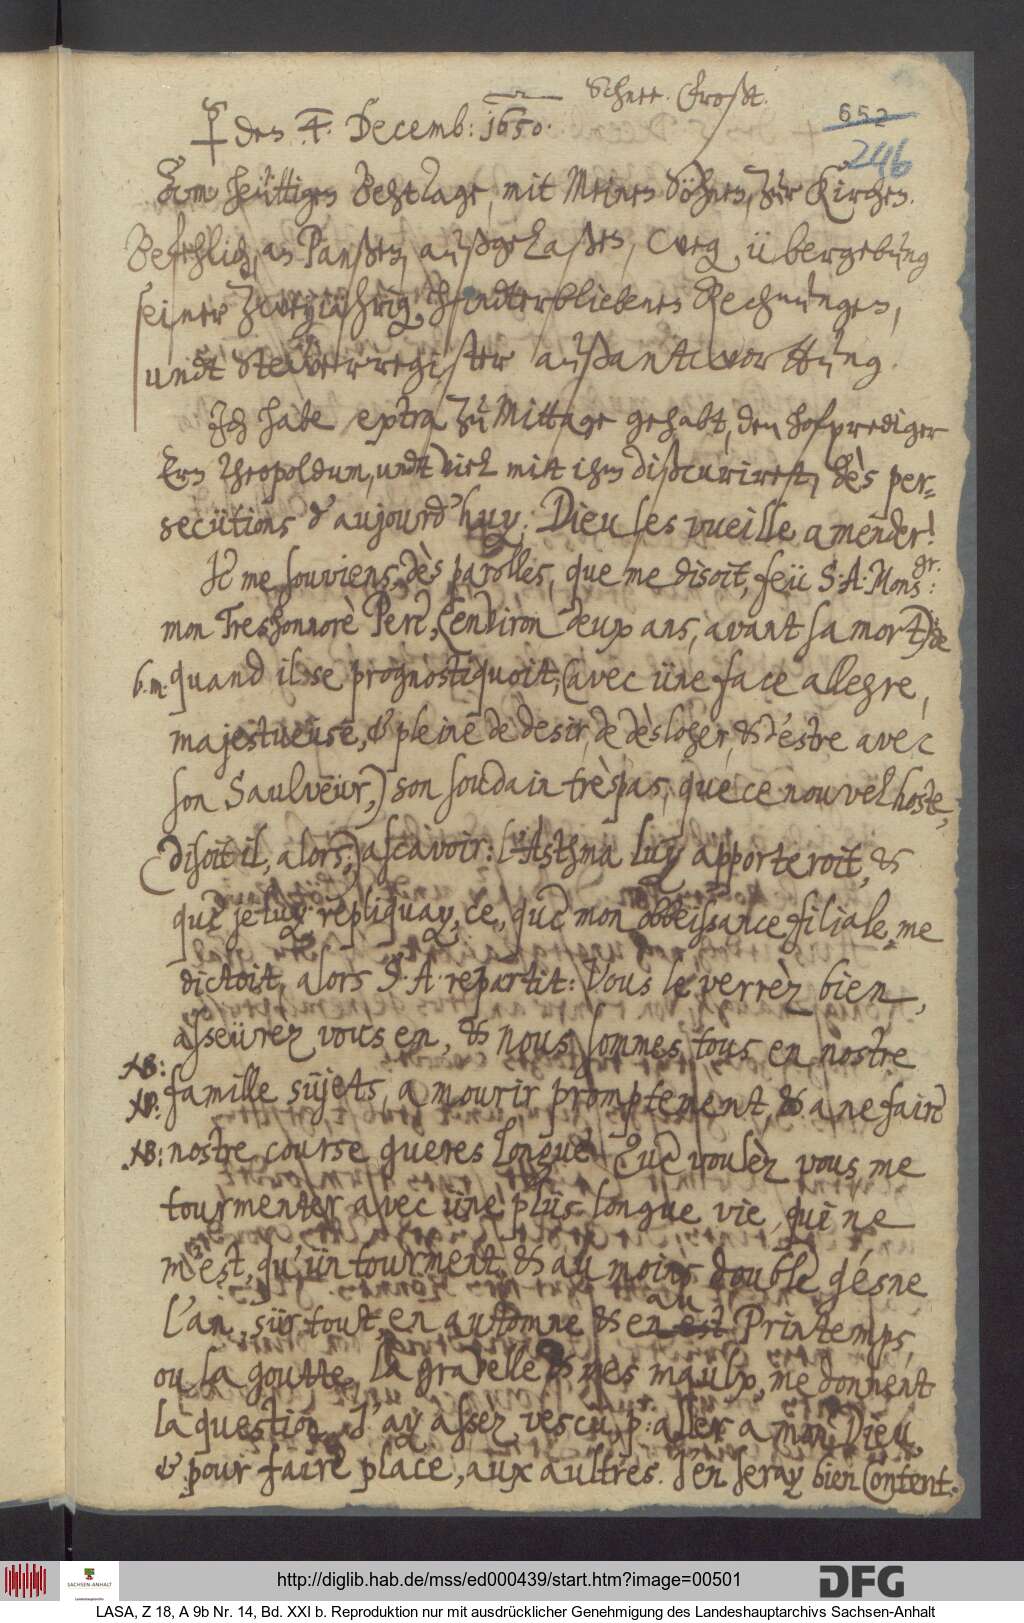 Schnee. Frost.
den 4. Decemb: 1650.
652
246
Zum heüttigen Behttage, mit Meinen Söhnen, zur Kirchen.
Befehlich, an Panßen, außgelaßen, weg. übergebung
seiner zweyiährig hindterbliebenen Rechnungen,
undt Steüerregister außantwortung.
Jch habe extra zu Mittage gehabt, den hofprediger
Ern Theopoldum, undt viel mitt ihm dißcurirt, dès per-
secütions d'aujourd'huy. Dieu les vueille amender!
Il me souviens, dès parolles, que me disoit, feü S: A: Mons gr.:
mon Treshonnorè Pere, (environ deux ans, avant sa mort) de
b. m. quand il se prognostiquoit, (avec üne face allegre,
majestueuse, & pleine de desir, de dèsloger, & d'estre avec
son Saulveür,) son soudain trèspas, que ce nouvel hoste,
(disoit il, alors,) ascavoir: l'Asthma luy apporteroit, &
que je luy rèpliquay, ce, que mon obbeissance filiale, me
dictoit, alors S: A: repartit: Vous le verrèz bien,
asseürez vous en, & nous sommes tous en nostre
NB:
NB: famille süjets, a mourir promptement, & a ne faire
NB: nostre course gueres longue. Que voulèz vous, me
tourmenter avec üne plüs longue vie, qui ne
m'est, qu'ün tourment, & au moins double gésne
l'an, sür tout, en automne & en est au Printemps,
ou la goutte, la gravelle & mès maulx, me donnent
la question. J'ay assez vescü, p: aller a mon Dieu,
& pour faire place, aux aultres. J'en seray bien content.
http://diglib.hab.de/mss/ed000439/start.htm?image=00501
SACHSEN-ANHALT
DFG
LASA, Z 18, A 9b Nr. 14, Bd. XXI b. Reproduktion nur mit ausdrücklicher Genehmigung des Landeshauptarchivs Sachsen-Anhalt